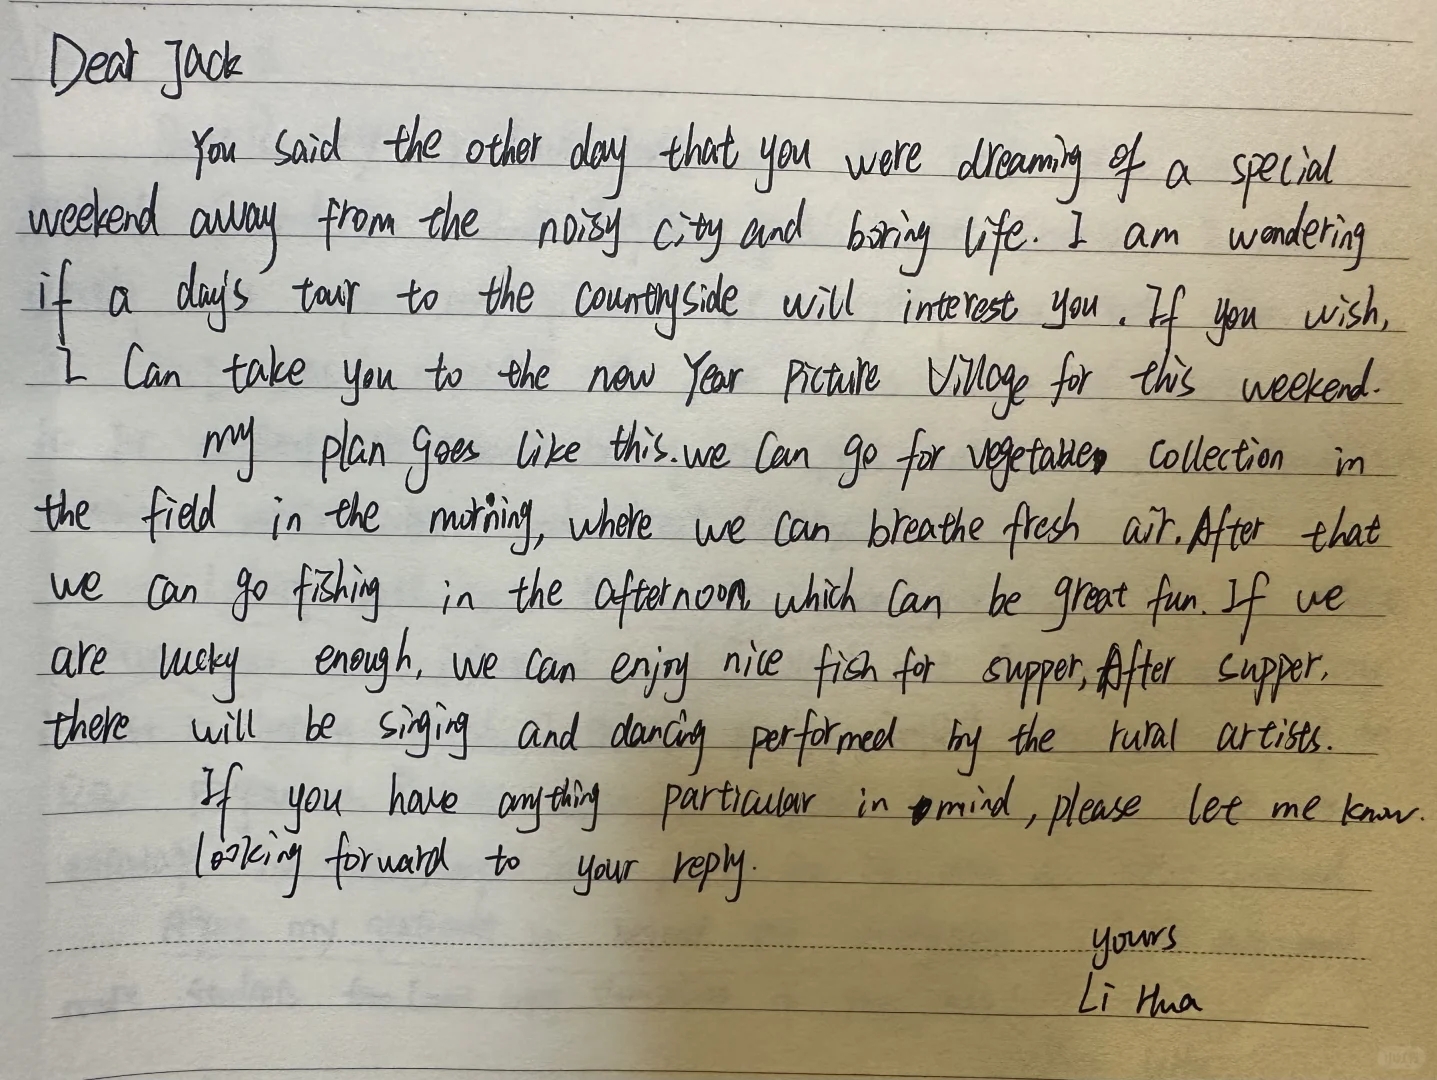 Dear Jack
You said the other day that you were dreaming of a special
weekend away from the noisy city and boring life. I am wondering
if a day's tour to the countryside will interest you. If you wish,
I Can take you to the new Year Picture Village for this weekend.
my plan Goes like this. we Can go for vegetable collection in
the field in the morning, where we can breathe fresh air. After that
we can go fishing in the afternoon, which Can be great fun. If we
are lucky enough, we can enjoy nice fish for supper, After supper,
there will be singing and dancing performed by the rural artists.
If you have anything particular in mind, please let me know.
looking forward to your reply.
yours
Li Hua